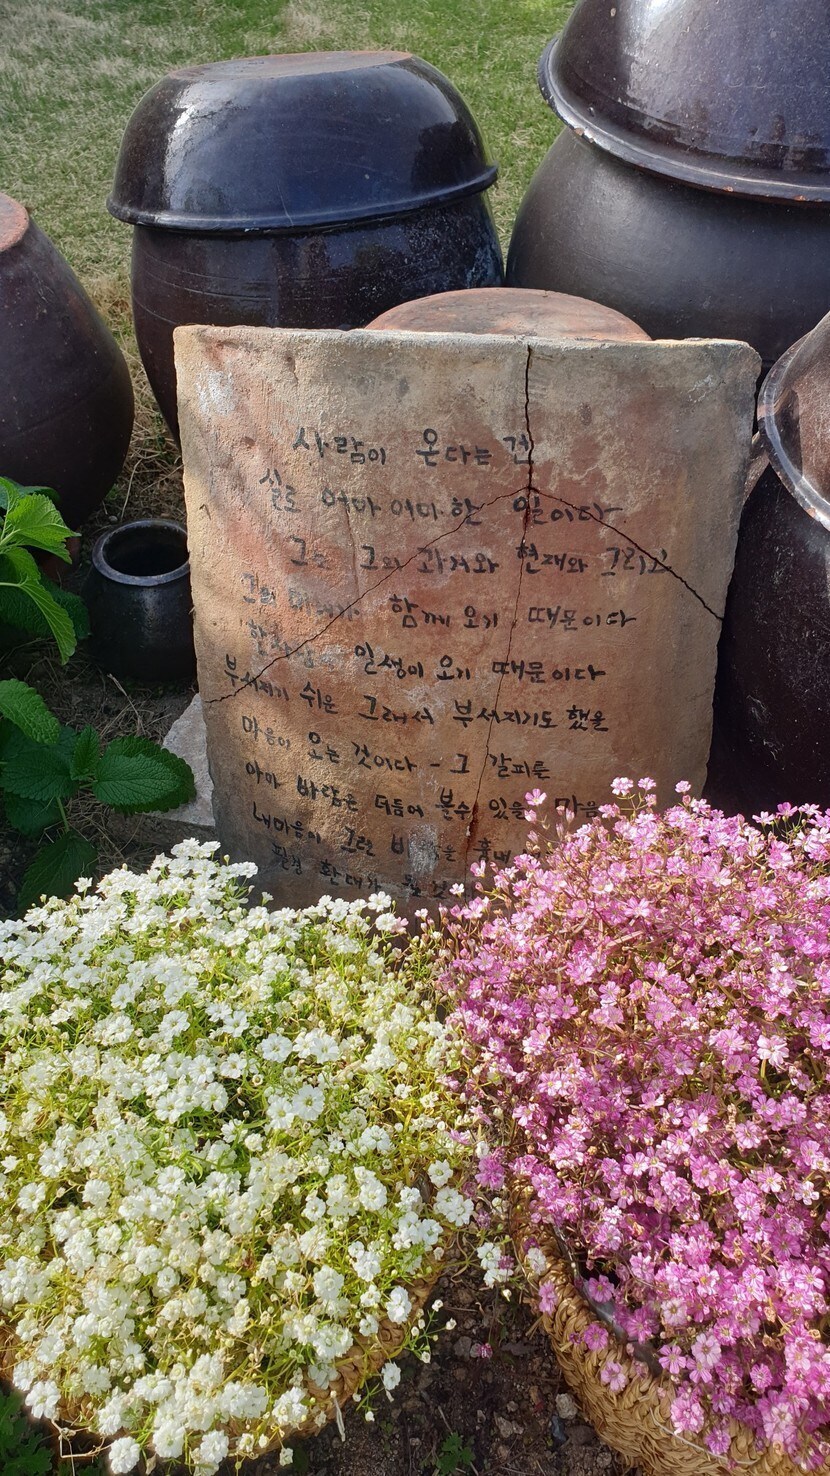 사람이 온다는 건
실로 어마 어마 한 일이다.
그는 그의 과거와 현재와 그리고
그의 미래가 함께 오기 때문이다
한사람의 일생이 오기 때문이다
부서지기 쉬운 그래서 부서지기도 했을
마음이 오는 것이다 - 그 갈피를
아마 바람은 더듬어 볼수 있을 마음
내마음이 그런 바람을 흉내
필경 환대가 될 것